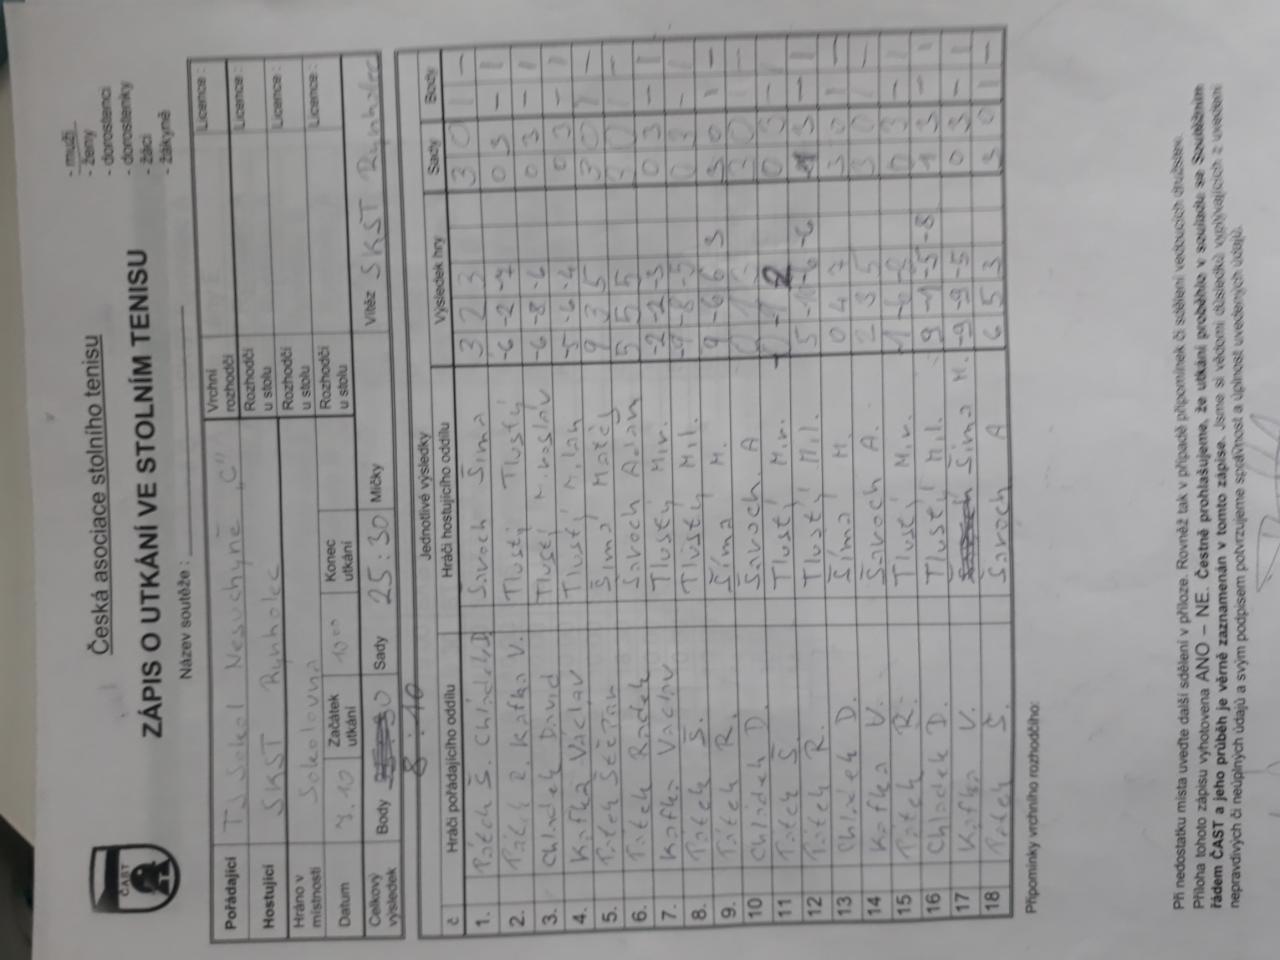 ČAST
Česká asociace stolního tenisu
ZÁPIS O UTKÁNÍ VE STOLNÍM TENISU
Název soutěže :
- muži
- ženy
- dorostenci
- dorostenky
- žáci
- žákyně
Pořádající TJ Sokol Nesuchyně „C" Vrchní rozhodčí Licence :
Hostující SKST Rynholec Rozhodčí u stolu Licence :
Hráno v místnosti Sokolovna Rozhodčí u stolu Licence :
Datum 7.10 Začátek utkání 10 00 Konec utkání Rozhodčí u stolu Licence :
Celkový výsledek Body 8:10 Sady 25:30 Míčky Vítěz SKST Rynholec
Jednotlivé výsledky
č Hráči pořádajícího oddílu Hráči hostujícího oddílu Výsledek hry Sady Body
1. Pátek Š. Chládek D Šaroch Šíma 3 2 3 3 0 1 –
2. Pátek R. Kafka V. Tlustý Tlustý -6 -2 -7 0 3 – 1
3. Chládek David Tlustý Miroslav -6 -8 -6 0 3 – 1
4. Kafka Václav Tlustý Milan -5 -6 -4 0 3 – 1
5. Pátek Štěpán Šíma Matěj 9 3 5 3 0 1 –
6. Pátek Radek Šaroch Adam 5 5 5 3 0 1 –
7. Kafka Václav Tlustý Mir. -2 -2 -3 0 3 – 1
8. Pátek Š. Tlustý Mil. -9 -8 -5 0 3 – 1
9. Pátek R. Šíma M. 9 -6 6 3 3 1 –
10 Chládek D. Šaroch A 3 0 1 –
11 Pátek Š Tlustý Mir. 0 3 – 1
12 Pátek R. Tlustý Mil. 5 -6 -6 1 3 – 1
13 Chládek D. Šíma M. 0 4 7 3 0 1 –
14 Kafka V. Šaroch A. 2 3 5 3 0 1 –
15 Pátek R. Tlustý Mir. 0 3 – 1
16 Chládek D. Tlustý Mil. 9 -1 -5 -8 1 3 – 1
17 Kafka V. Šíma M. -9 -9 -5 0 3 – 1
18 Pátek Š. Šaroch A 6 5 3 3 0 1 –
Připomínky vrchního rozhodčího:
Při nedostatku místa uveďte další sdělení v příloze. Rovněž tak v případě připomínek či sdělení vedoucích družstev.
Příloha tohoto zápisu vyhotovena ANO – NE. Čestně prohlašujeme, že utkání proběhlo v souladu se Soutěžním
řádem ČAST a jeho průběh je věrně zaznamenán v tomto zápise. Jsme si vědomi důsledků vyplývajících z uvedení
nepravdivých či neúplných údajů a svým podpisem potvrzujeme správnost a úplnost uvedených údajů.